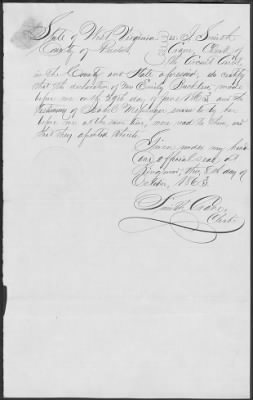 State of West Virginia ss: I, Smith
County of Preston Crane, Clerk of
the Circuit Court
in the County and State aforesaid, do certify
that the declaration of Mrs Emily Buckhew, made
before me on the 29th day of June 1863, and the
testimony of sworn to by
before me at the same time, was read to them, and
that they affected thereto.
Given under my hand
and official seal at
Kingwood, this 8th day of
October, 1863.
Smith Crane,
Clerk